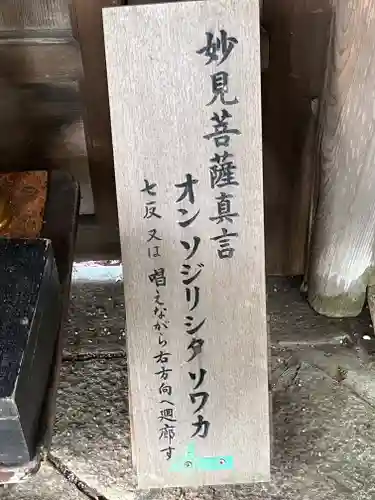 妙見菩薩真言
オン ソジリシタ ソワカ
七反 又は 唱えながら右方向へ廻廊す